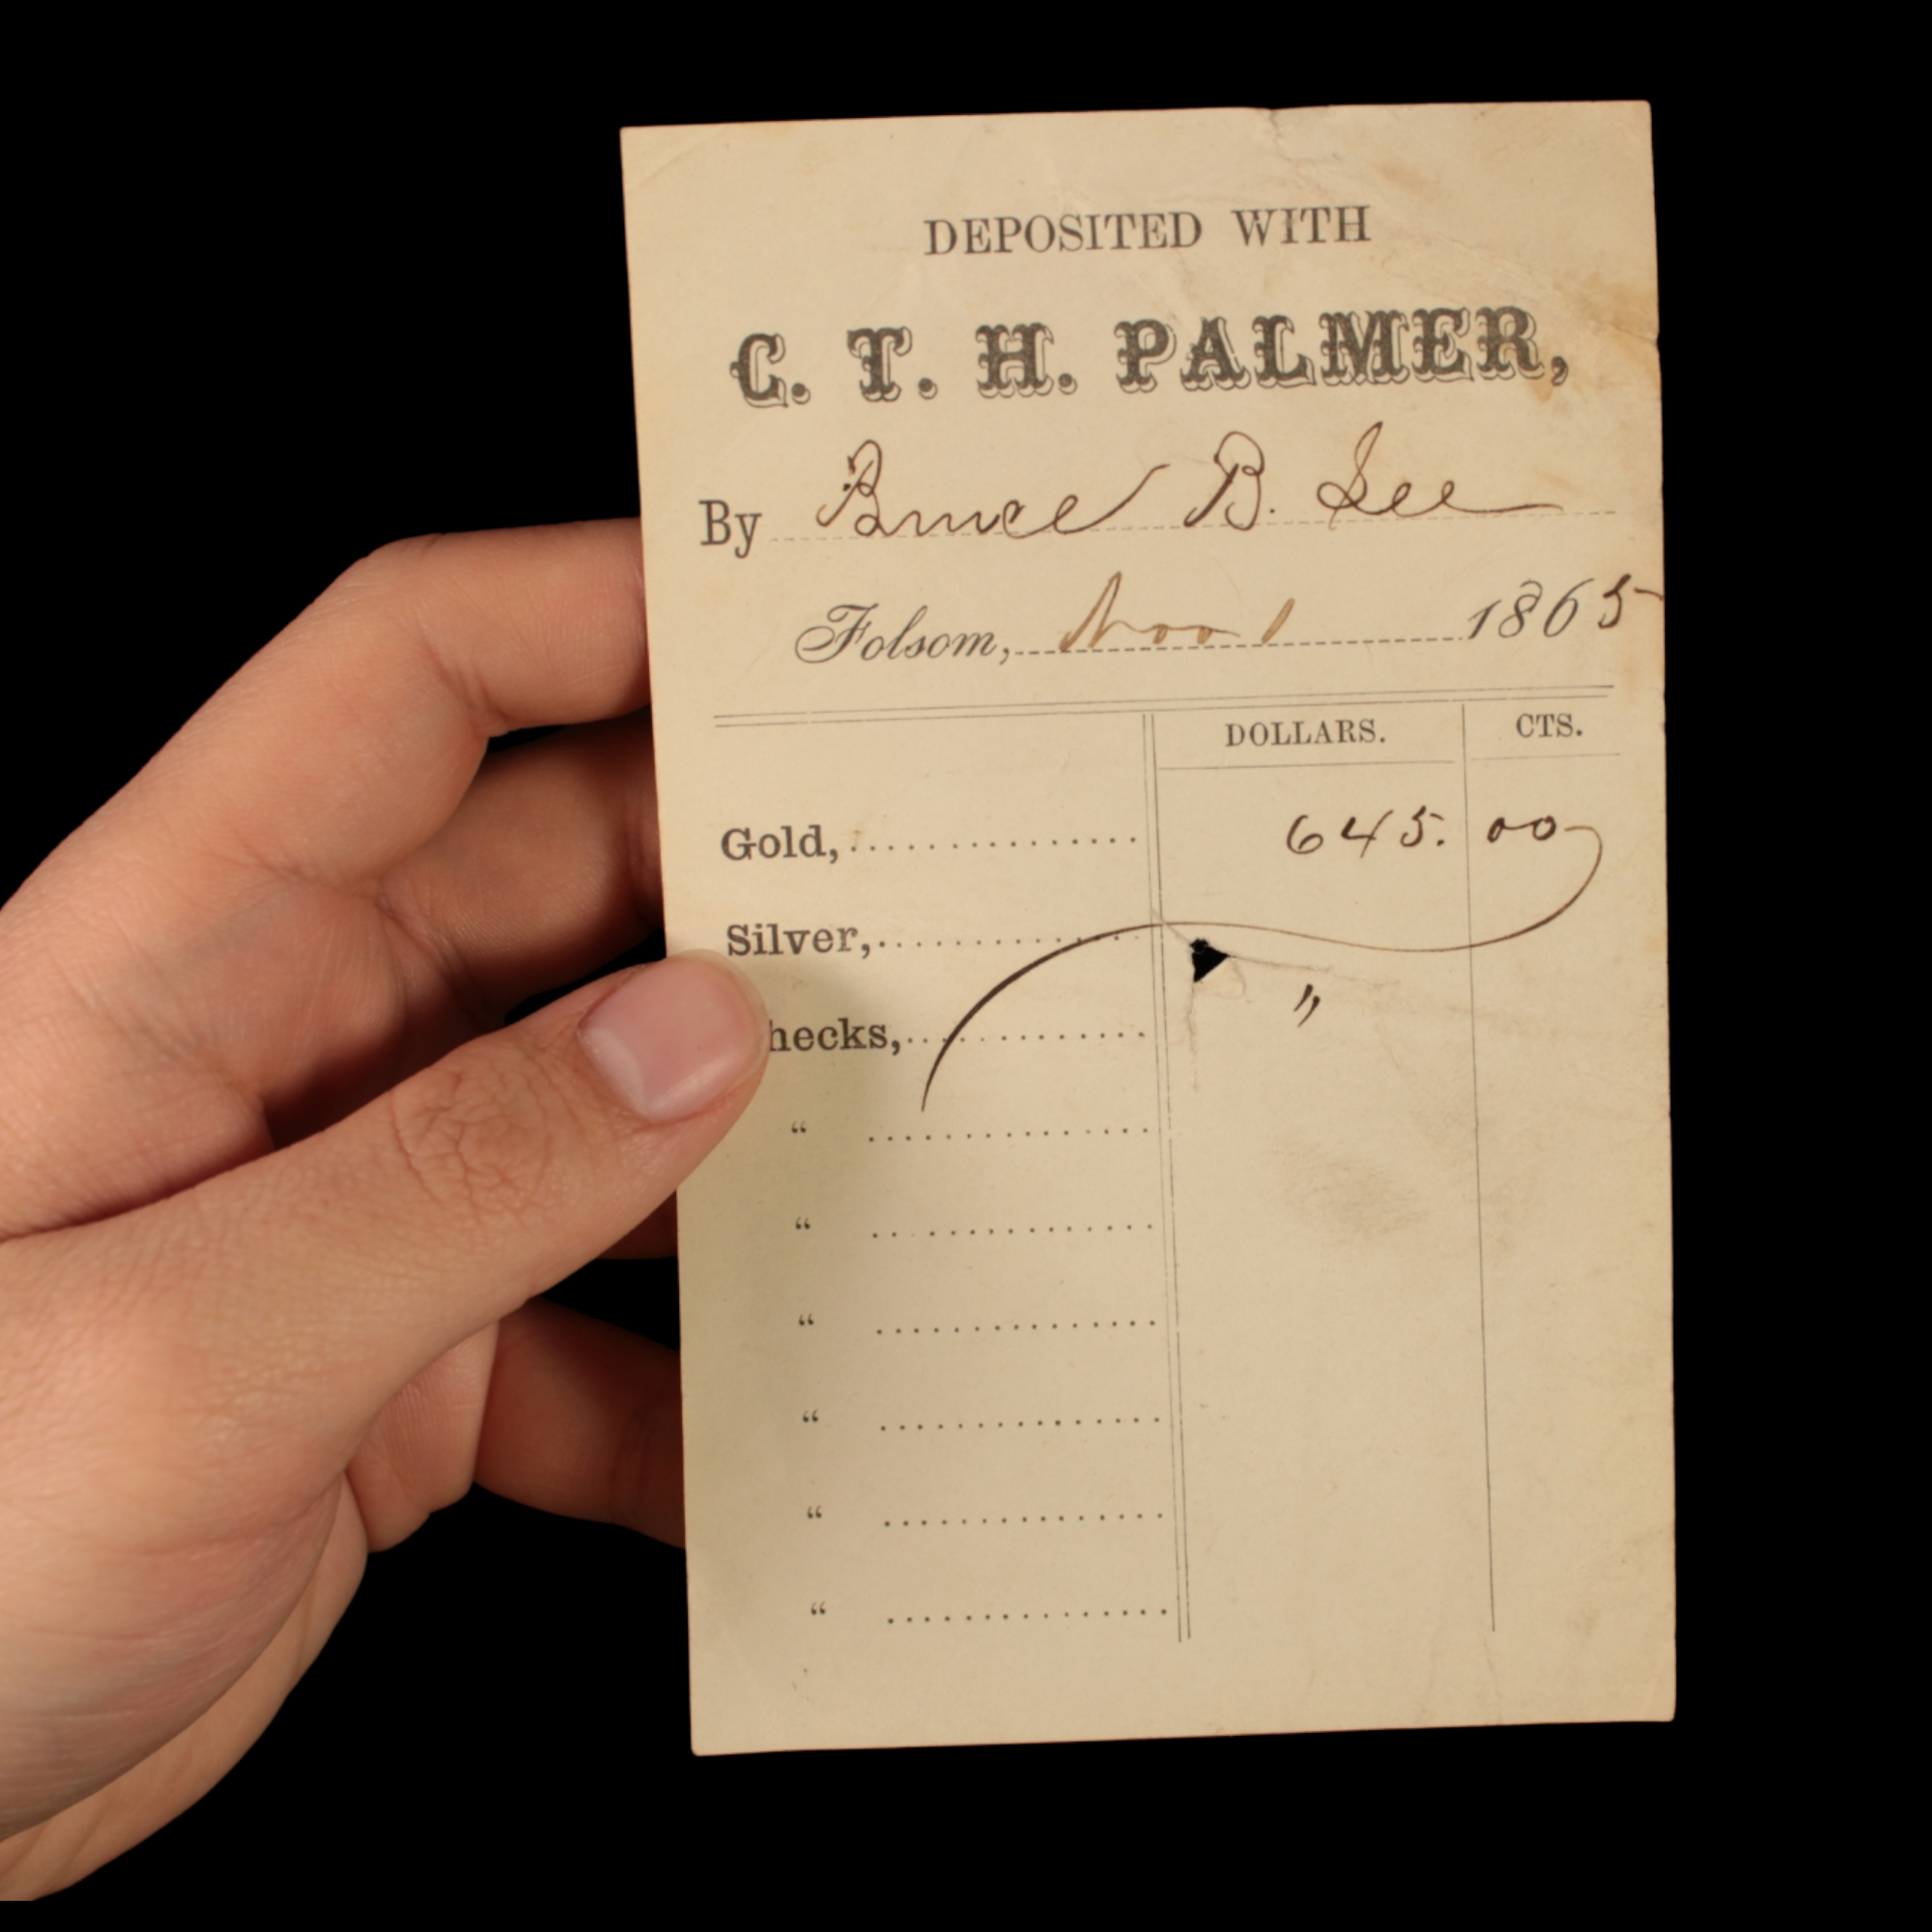 DEPOSITED WITH
C. T. H. PALMER,
By Bruce B. Lee
Folsom, Nov 1 1865
DOLLARS. CTS.
Gold, 645. 00
Silver,
hecks, "
"
"
"
"
"
"